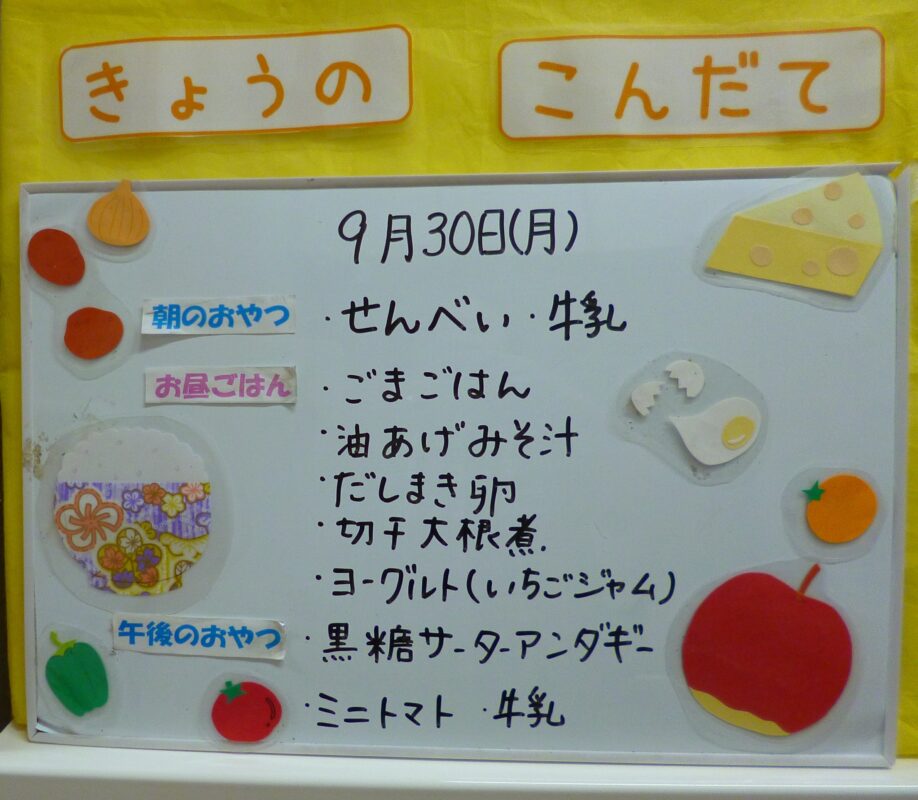 きょうの こんだて
9月30日(月)
朝のおやつ ・せんべい ・牛乳
お昼ごはん ・ごまごはん
・油あげみそ汁
・だしまき卵
・切干大根煮.
・ヨーグルト(いちごジャム)
午後のおやつ ・黒糖サーターアンダギー
・ミニトマト ・牛乳